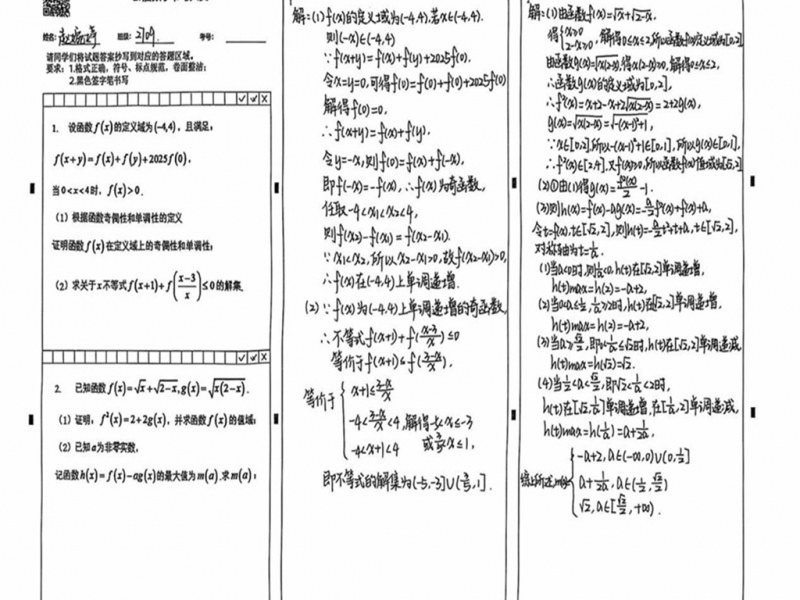 姓名: 班级: 2709. 考号:
请同学们将试题答案抄写到对应的答题区域。
要求: 1.格式正确, 符号、标点规范, 卷面整洁;
2.黑色签字笔书写
1. 设函数f(x)的定义域为(-4,4), 且满足:
f(x+y)=f(x)+f(y)+2025f(0),
当0<x<4时, f(x)>0.
(1) 根据函数奇偶性和单调性的定义
证明函数f(x)在定义域上的奇偶性和单调性;
(2) 求关于x不等式f(x+1)+f((x-3)/x)≤0的解集.
2. 已知函数f(x)=√x+√(2-x), g(x)=√(x(2-x)).
(1) 证明: f²(x)=2+2g(x), 并求函数f(x)的值域;
(2) 已知a为非零实数,
记函数h(x)=f(x)-ag(x)的最大值为m(a).求m(a);
解:(1)f(x)的定义域为(-4,4),若x∈(-4,4).
则(-x)∈(-4,4)
∵f(x+y)=f(x)+f(y)+2025f(0).
令x=y=0,可得f(0)=f(0)+f(0)+2025f(0)
解得f(0)=0,
∴f(x+y)=f(x)+f(y).
令y=-x,则f(0)=f(x)+f(-x),
即f(-x)=-f(x),∴f(x)为奇函数,
任取-4<x₁<x₂<4,
则f(x₂)-f(x₁)=f(x₂-x₁).
∵x₁<x₂,所以x₂-x₁>0,故f(x₂-x₁)>0,
∴f(x)在(-4,4)上单调递增.
(2)∵f(x)为(-4,4)上单调递增的奇函数,
∴不等式f(x+1)+f((x-3)/x)≤0
等价于f(x+1)≤f((3-x)/x).
等价于
x+1≤(3-x)/x
-4<(3-x)/x<4,解得-5<x≤-3
-4<x+1<4 或3/5<x≤1,
即不等式的解集为(-5,-3]∪(3/5,1].
解:(1)由函数f(x)=√x+√(2-x),
得{x≥0 2-x≥0,解得0≤x≤2,所以函数f(x)定义域为[0,2]
由函数g(x)=√(x(2-x)),得x(2-x)≥0,解得0≤x≤2,
∴函数g(x)的定义域为[0,2],
∴f²(x)=x+2-x+2√(x(2-x))=2+2g(x),
g(x)=√(x(2-x))=√(-(x-1)²+1),
∵x∈[0,2],所以-(x-1)²+1∈[0,1],所以g(x)∈[0,1],
∴f²(x)∈[2,4],又f(x)>0,所以函数f(x)值域为[√2,2]
(2)①由(1)得g(x)=f²(x)/2-1.
(3)则h(x)=f(x)-ag(x)=-a/2f²(x)+f(x)+a,
令t=f(x),t∈[√2,2],则h(t)=-a/2t²+t+a,t∈[√2,2],
对称轴为t=1/a.
(1)当a<0时,则1/a<0,h(t)在[√2,2]单调递增,
h(t)max=h(2)=-a+2,
(2)当0<a≤1/2,1/a≥2时,h(t)在[√2,2]单调递增,
h(t)max=h(2)=-a+2,
(3)当a≥√2/2,即0<1/a≤√2时,h(t)在[√2,2]单调递减
h(t)max=h(√2)=√2.
(4)当1/2<a<√2/2,即√2<1/a<2时,
h(t)在[√2,1/a]单调递增,在[1/a,2]单调递减,
h(t)max=h(1/a)=a+1/2a,
-a+2,a∈(-∞,0)∪(0,1/2]
综上所述,m(a)= a+1/2a,a∈(1/2,√2/2)
√2,a∈[√2/2,+∞).